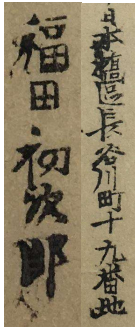 日本橋區長谷川町十九番地
福田初次郎